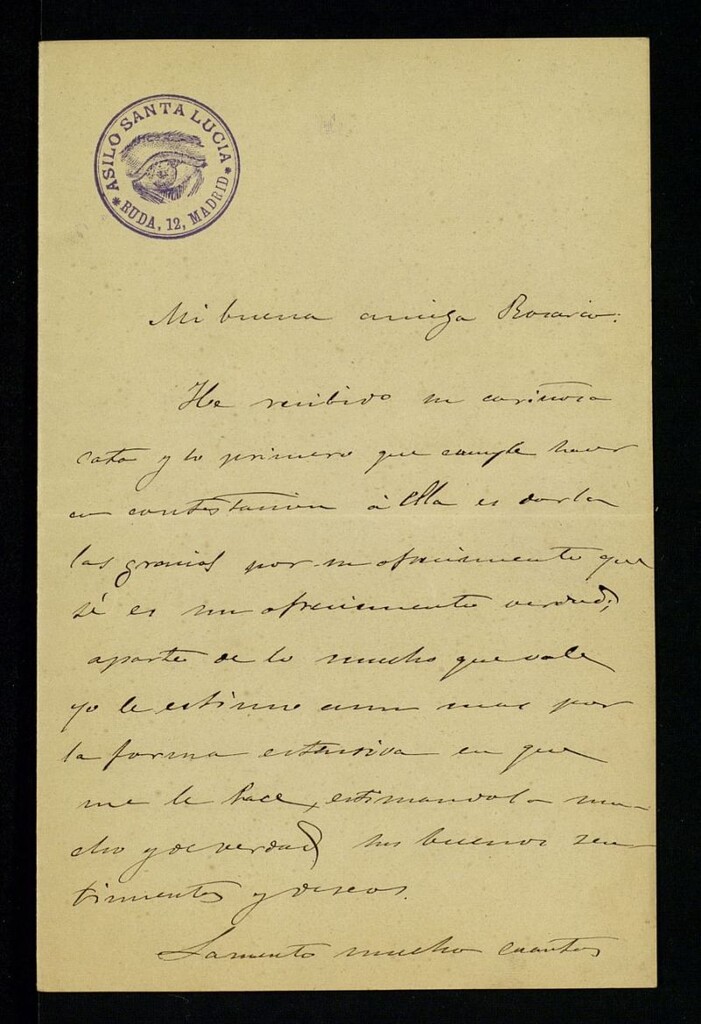 ASILO SANTA LUCIA
* RUDA, 12, MADRID *
Mi buena amiga Rosario:
He recibido su cariñosa
carta y lo primero que cumple hacer
en contestacion á ella es darla
las gracias por su ofrecimiento que
sé es un ofrecimiento verdad;
aparte de lo mucho que vale
yo le estimo aun mas por
la forma en que
me le hace, estimandola mu-
cho y de verdad sus buenos sen-
timientos y deseos.
Lamento mucho cuantos